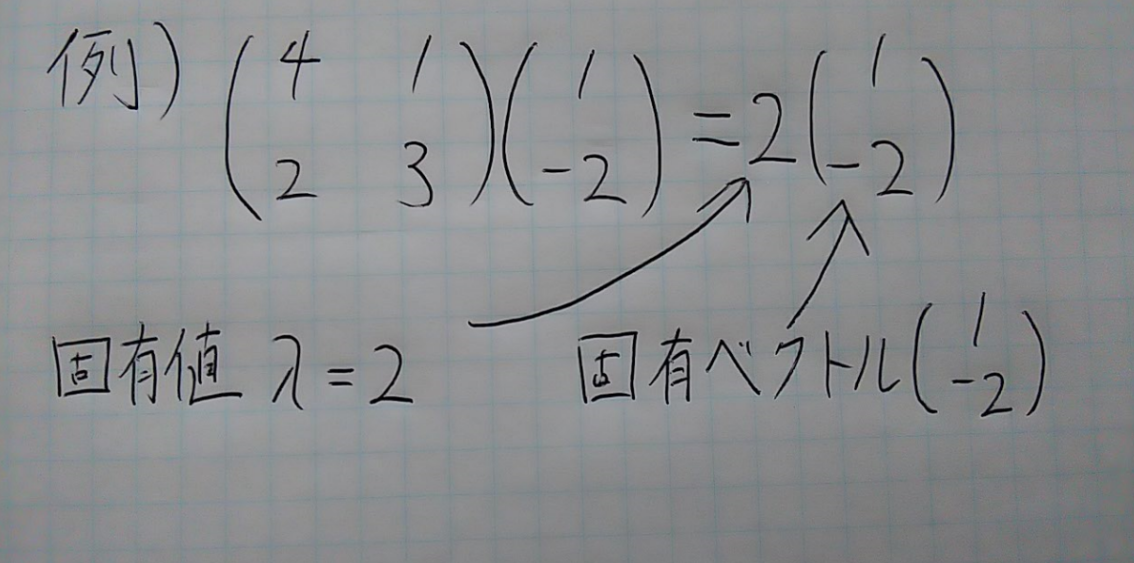 例) (4 1 2 3)(1 -2) = 2(1 -2)
固有値 λ = 2
固有ベクトル(1 -2)